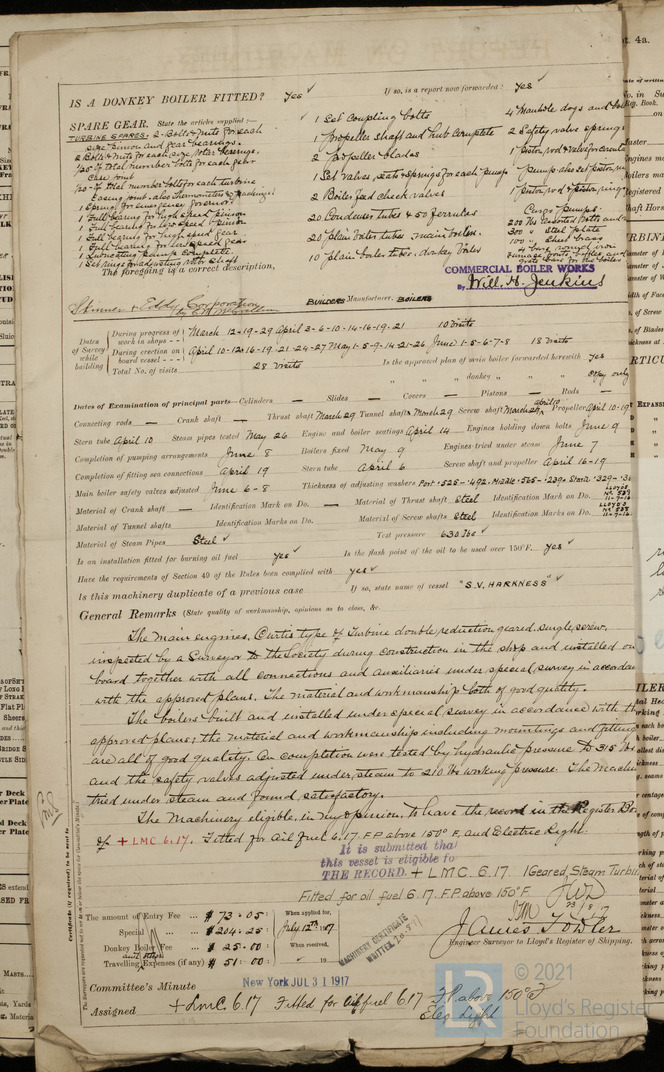 IS A DONKEY BOILER FITTED? Yes ✓ If so, is a report now forwarded? Yes ✓
SPARE GEAR. State the articles supplied:—
TURBINE SPARES: 2 Bolts & nuts for each
size pinion and gear bearings.
2 Bolts & nuts for each size rotor bearings.
1/20 of total number bolts for each gear
case joint
1/20 of total number bolts for each turbine
casing joint. also thermometers & packing
1 Spring for emergency governor
1 Full bearing for high speed pinion
1 Full bearing for low speed pinion
1 Full bearing for high speed gear
1 Full bearing for low speed gear
1 Lubricating pump complete.
1 Set rings for adjusting rotor shaft
The foregoing is a correct description,
1 Set Coupling bolts
1 Propeller shaft and hub complete
2 Propeller blades
1 Set valves, seats & springs for each pump
2 Boiler feed check valves
20 Condenser tubes & 50 ferrules
20 plain boiler tubes main boiler.
10 plain boiler tubes. donkey boiler
4 Manhole dogs and
2 Safety valve springs
1 Piston, rod & valves for
pump also set piston
1 Piston, rod & piston, ring
Cargo pumps.
200 lbs assorted bolts and
300 " steel plate
100 " sheet brass
COMMERCIAL BOILER WORKS
By Will. H. Jenkins
Skinner & Eddy Corporation
BUILDERS Manufacturer. BOILERS
Dates of Survey while building
During progress of work in shops - - March 12-19-29 April 3-6-10-14-16-19-21 10 visits
During erection on board vessel - - - April 10-12-16-19-21-24-27 May 1-5-9-14-21-26 June 1-5-6-7-8 18 visits
Total No. of visits 28 visits Is the approved plan of main boiler forwarded herewith Yes
" " " donkey " " " copy only
Dates of Examination of principal parts—Cylinders — Slides — Covers — Pistons — Rods —
Connecting rods — Crank shaft — Thrust shaft March 29 Tunnel shafts March 29 Screw shaft March 29 April 10 Propeller April 10-19
Stern tube April 10 Steam pipes tested May 26 Engine and boiler seatings April 14 Engines holding down bolts June 9
Completion of pumping arrangements June 8 Boilers fixed May 9 Engines tried under steam June 7
Completion of fitting sea connections April 19 Stern tube April 6 Screw shaft and propeller April 16-19
Main boiler safety valves adjusted June 6-8 Thickness of adjusting washers Port .525-.492. Middle .565-.239. Starb .329-.3
Material of Crank shaft — Identification Mark on Do. — Material of Thrust shaft Steel Identification Mark on Do. LLOYDS
Material of Tunnel shafts Identification Marks on Do. Material of Screw shafts Steel Identification Marks on Do. LLOYDS
Material of Steam Pipes Steel ✓ Test pressure 630 lbs ✓
Is an installation fitted for burning oil fuel yes ✓ Is the flash point of the oil to be used over 150°F. yes ✓
Have the requirements of Section 49 of the Rules been complied with yes ✓
Is this machinery duplicate of a previous case If so, state name of vessel "S.V. HARKNESS" ✓
General Remarks (State quality of workmanship, opinions as to class, &c.
The main engines, Curtis type of Turbine double reduction geared, single screw,
inspected by a Surveyor to the Society during construction in the shop and installed on
board together with all connections and auxiliaries under special survey in accordan
with the approved plans. The material and workmanship both of good quality.
The boilers built and installed under special survey in accordance with th
approved plans; the material and workmanship including mountings and fittings
are all of good quality. On completion were tested by hydraulic pressure to 315 lbs
and the safety valves adjusted under steam to 210 lbs working pressure. The Machin
tried under steam and found satisfactory.
The Machinery eligible, in my opinion, to have the record in the Register Bo
of + LMC 6.17. Fitted for Oil fuel 6.17. F.P. above 150° F. and Electric Light.
It is submitted that
this vessel is eligible for
THE RECORD. + LMC 6.17. 1 Geared Steam Turbin
Fitted for oil fuel 6.17. F.P. above 150°F.
The amount of Entry Fee ... $ 73.05: When applied for,
Special ... $ 204.25 July 12th 1917
Donkey Boiler Fee ... $ 25.00 When received,
Travelling Expenses (if any) $ 51.00 19
MACHINERY CERTIFICATE
WRITTEN
James Fowler
Engineer Surveyor to Lloyd's Register of Shipping.
Committee's Minute New York JUL 31 1917
Assigned + LMC. 6.17 Fitted for Oil fuel 6.17 F.P. above 150°F
Elec Light
© 2021
Lloyd's Register
Foundation